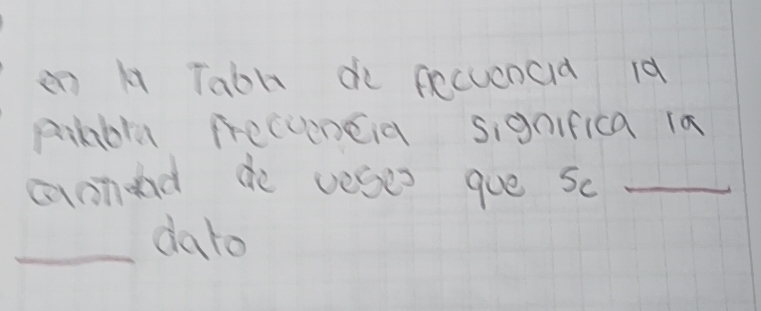 en la Tabla de frecuencia la
palabra frecuencia significa la
cantidad de veses que se ____
____ dato